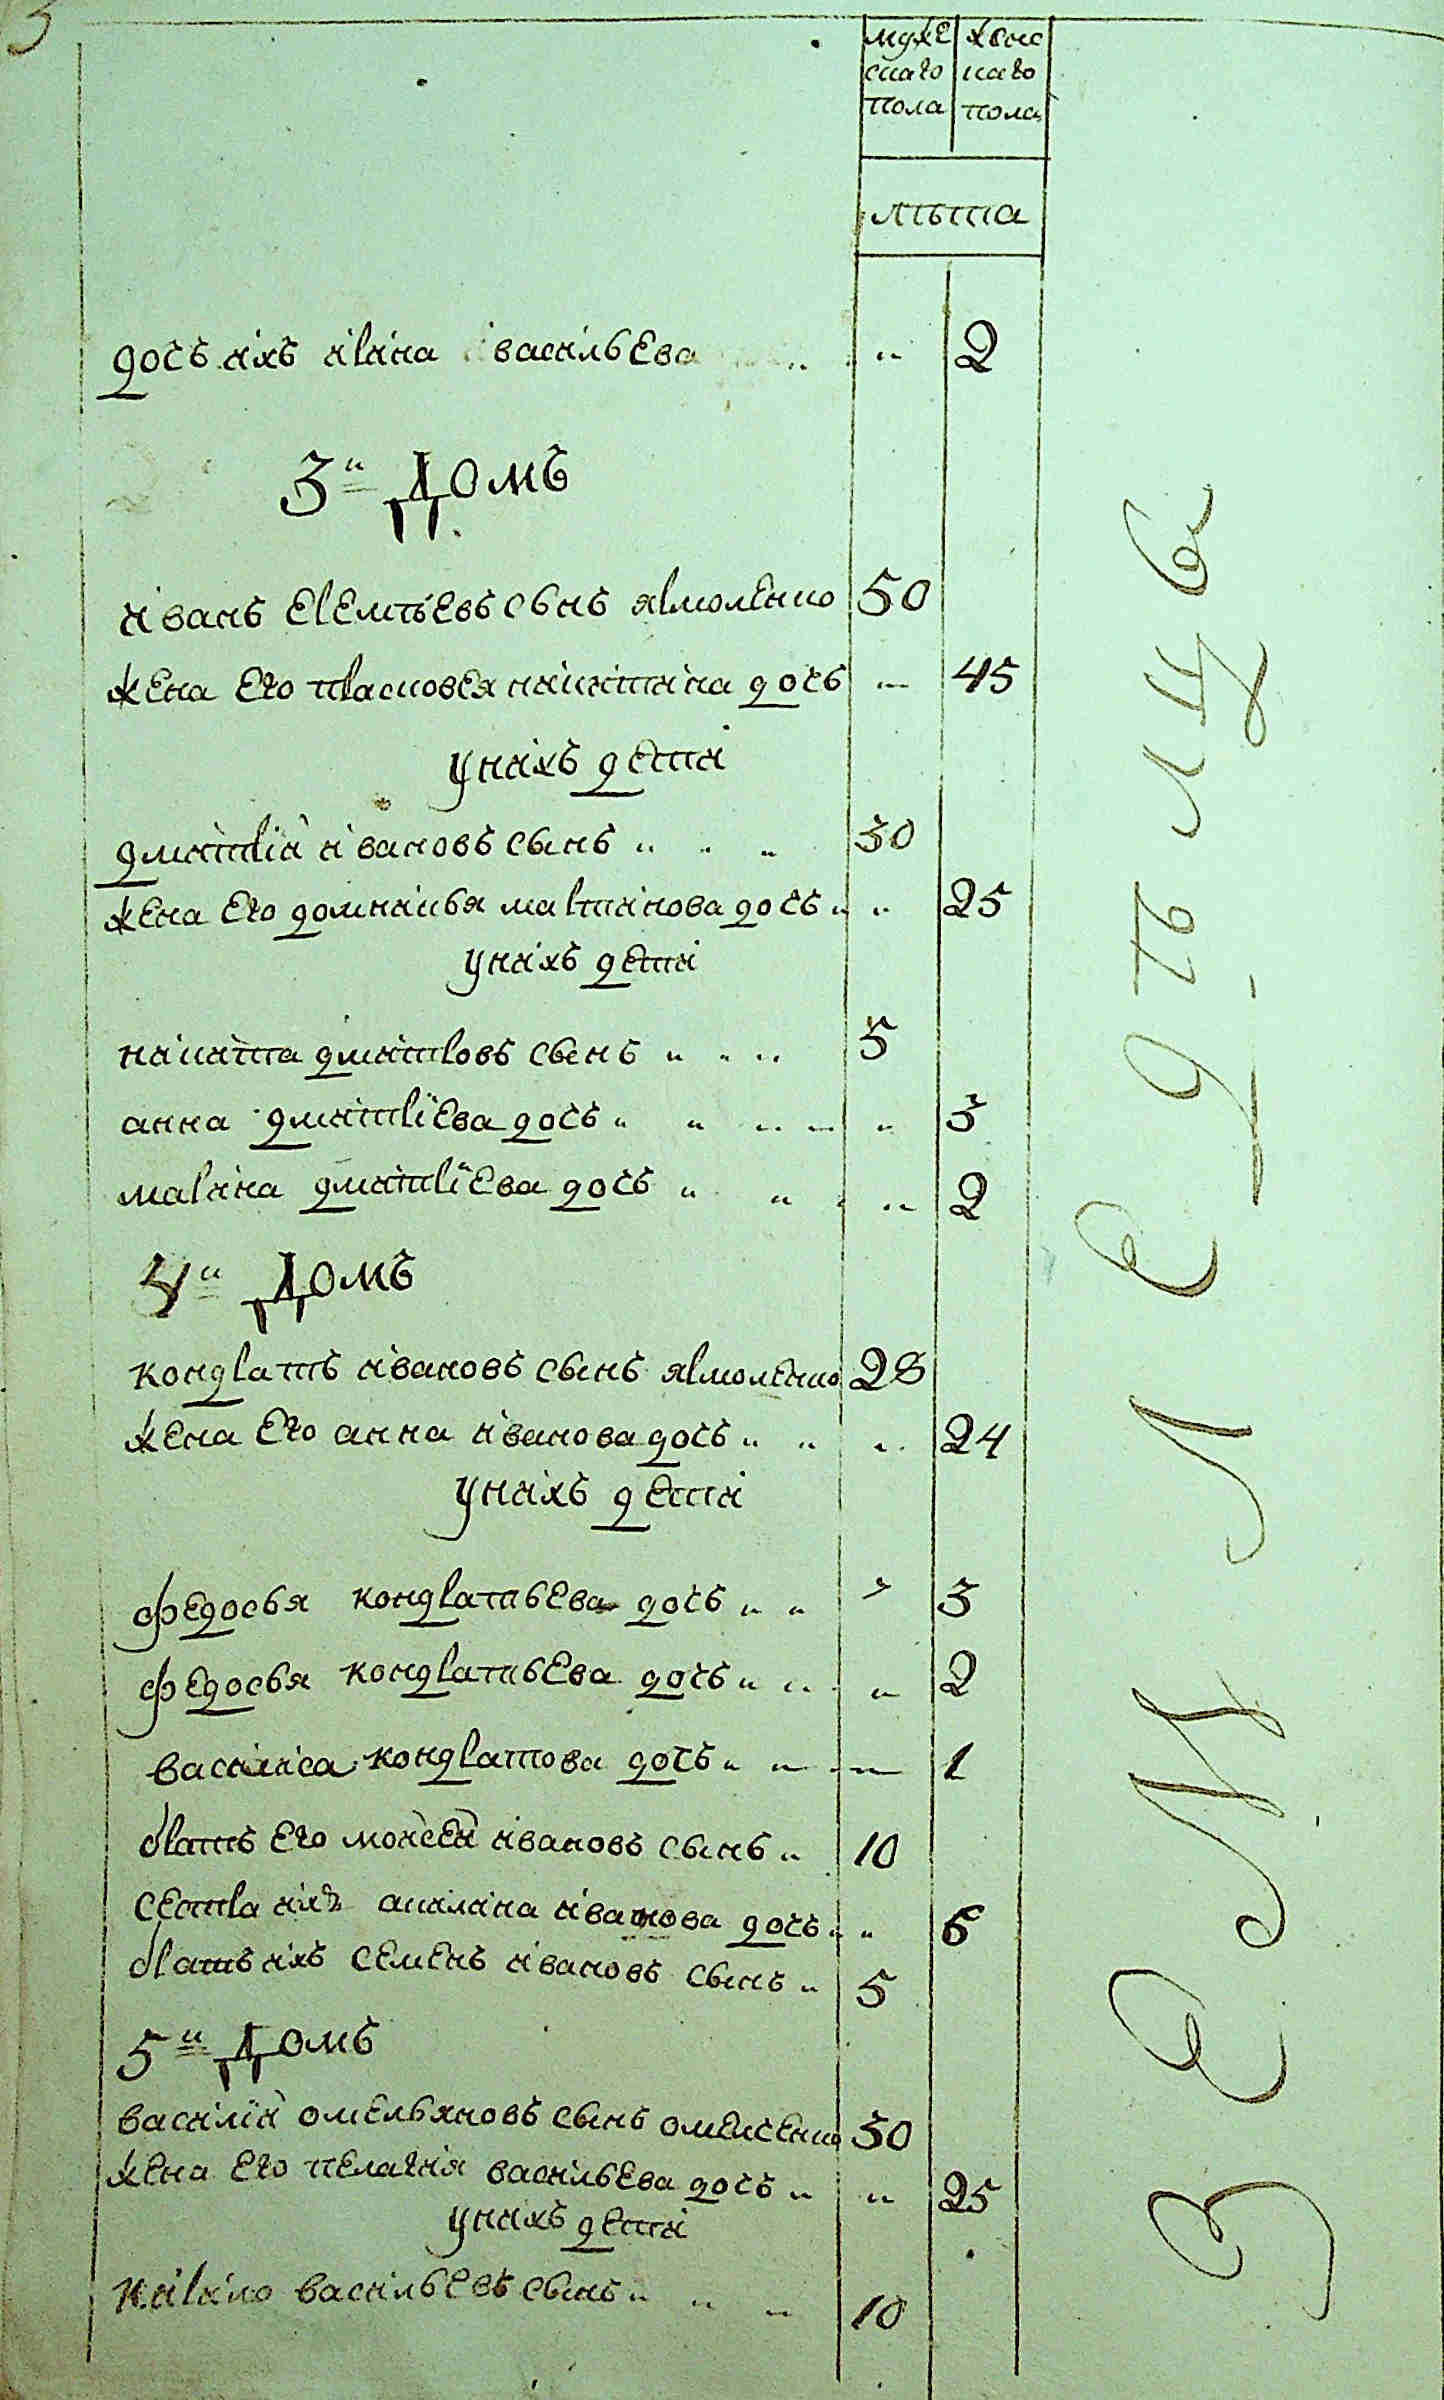 муже женс
скаго каго
пола пола
лѣта
дочь ихъ ирина васильева „ 2
3й домъ
иванъ еремѣевъ сынъ ярмоленко 50
жена его прасковея никитина дочь „ 45
у нихъ дети
дмитрій ивановъ сынъ „ „ „ 30
жена его домникия мартинова дочь „ „ 25
у нихъ дети
никита дмитровъ сынъ „ „ „ 5
анна дмитріева дочь „ „ „ „ „ 3
марина дмитріева дочь „ „ „ 2
4й домъ
кондратъ ивановъ сынъ ярмоленко 28
жена его анна иванова дочь „ „ „ 24
у нихъ дети
федосья кондратьева дочь „ „ „ 3
федосья кондратьева дочь „ „ „ 2
василиса кондратова дочь „ „ „ 1
братъ его моисей ивановъ сынъ „ 10
сестра ихъ акилина иванова дочь „ „ 6
братъ ихъ семенъ ивановъ сынъ „ 5
5й домъ
василій омельяновъ сынъ 30
жена его пелагия васильева дочь „ „ 25
у нихъ дети
кирило васильевъ сынъ „ „ „ 10
земледѣлцы